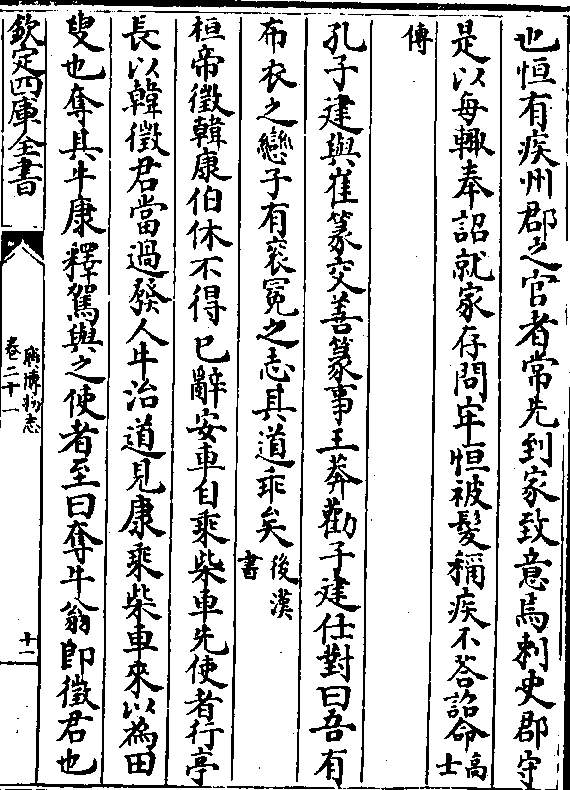 也恒有疾州郡之官者常先到家致意焉刺史郡守
是以每輙奉詔就家存問牢恒被髮稱疾不荅詔命高士
傳
孔子建與崔篆交善篆事王莽勸子建仕對曰吾有
布衣之戀子有衮冕之志具道乖矣後漢書
桓帝徵韓康伯休不得已辭安車自乘柴車先使者行亭
長以韓徵君當過發人牛治道見康乘柴車來以為田
叟也奪其牛康釋駕與之使者至曰奪牛翁即徵君也
欽定四庫全書
廣博物志
卷二十一
十二